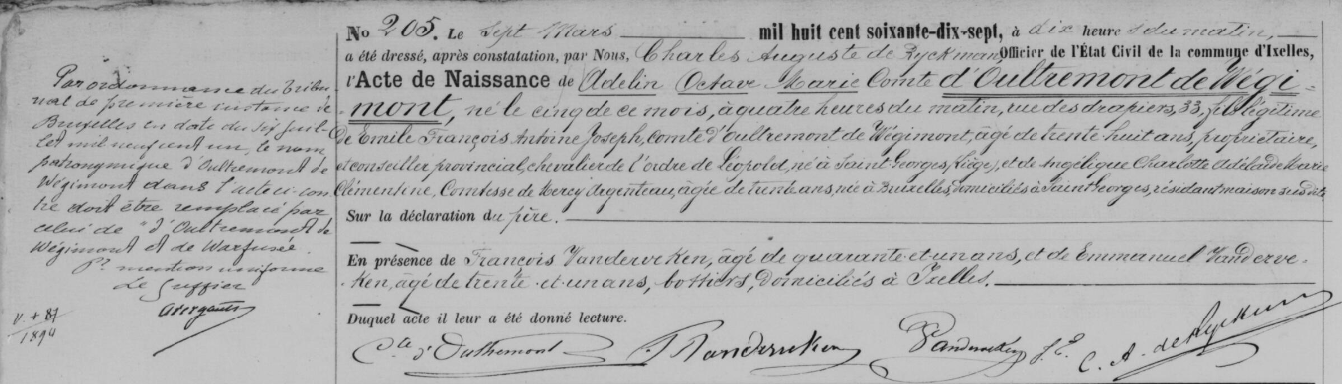 Par ordonnance du Tribu-
nal de première instance de
Bruxelles en date du six juil-
let mil neuf cent un, le nom
patronymique d'Oultremont de
Wégimont dans l'acte ci-con-
tre doit être remplacé par
celui de "d'Oultremont de
Wégimont et de Warfusée.
Pr mention uniforme
Le Greffier
V. + 87
1894
No 205. Le Sept Mars mil huit cent soixante-dix-sept, à dix heures du matin,
a été dressé, après constatation, par Nous, Charles Auguste de Ryckman, Officier de l'État Civil de la commune d'Ixelles,
l'Acte de Naissance de Adelin Octave Marie Comte d'Oultremont de Wégi-
mont, né le cinq de ce mois, à quatre heures du matin, rue des drapiers, 33, fils légitime
de Emile François Antoine Joseph, comte d'Oultremont de Wégimont, âgé de trente huit ans, propriétaire,
et conseiller provincial, chevalier de l'ordre de Léopold, né à Saint-Georges (Liège), et de Angélique Charlotte Adélaïde Marie
Clémentine, Comtesse de Mercy Argenteau, âgée de trente ans, née à Bruxelles, domiciliés à Saint Georges, résidant maison susdite
Sur la déclaration du père.
En présence de François Vanderveken, âgé de quarante et un ans, et de Emmanuel Vanderve-
ken, âgé de trente et un ans, bottiers, domiciliés à Ixelles.
Duquel acte il leur a été donné lecture.
Cte d'Oultremont F Vanderveken Vanderveken J. E. C. A. de Ryckman